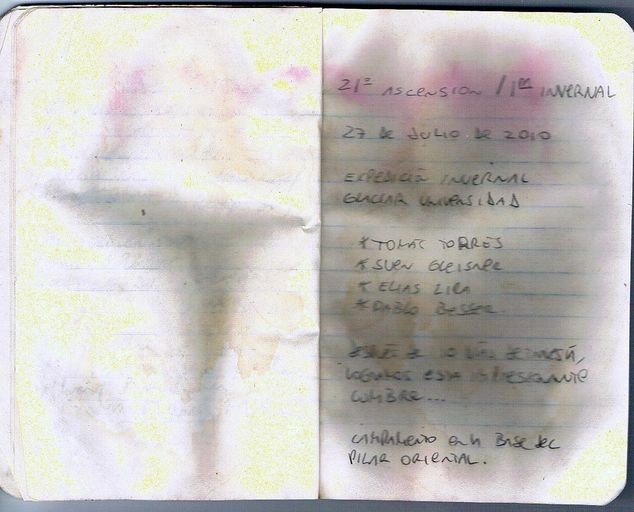 21ª ASCENSION / 1ª INVERNAL
27 DE JULIO DE 2010
EXPEDICIÓN INVERNAL
GLACIAR UNIVERSIDAD
* TOMAS TORRES
* SVEN GLEISNER
* ELIAS LIRA
* PABLO BESSER
DE 10 DÍAS DE
LOGRAMOS ESTA IMPRESIONANTE
CUMBRE...
CAMPAMENTO EN LA BASE DEL
PILAR ORIENTAL.